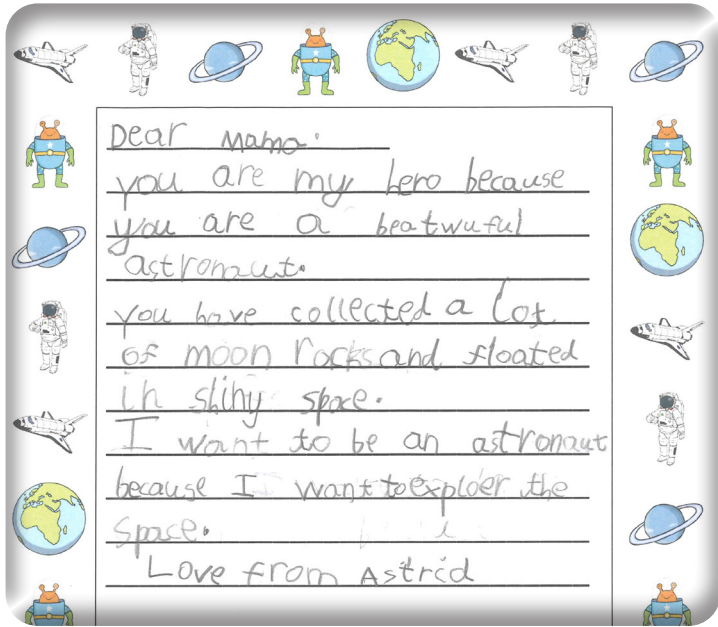 Dear Mama.
you are my hero because
you are a beatwuful
astronaut.
you have collected a lot
of moon rocks and floated
in shiny space.
I want to be an astronaut
because I want to exploer the
space.
Love from Astrid